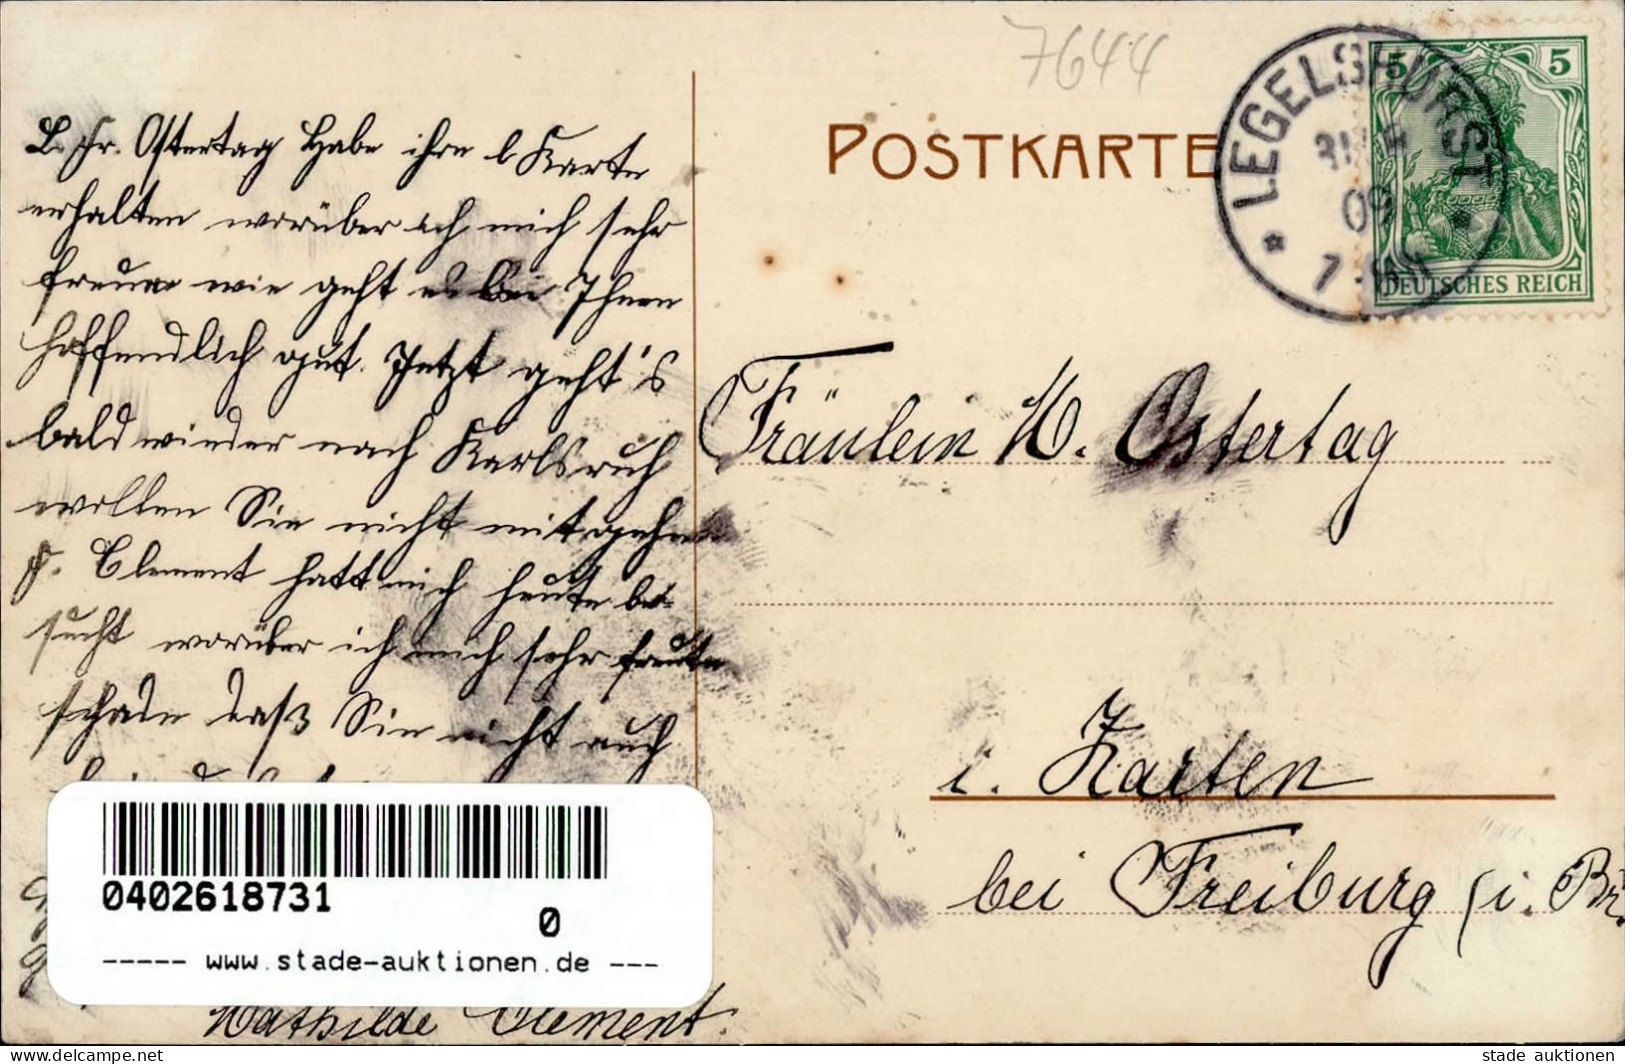 7644
POSTKARTE
LEGELSHURST
09
5 5
DEUTSCHES REICH
L. Fr. Ostertag Habe ihre l Karte
erhalten worüber ich mich sehr
freue wie geht es bei Ihnen
hoffendlich gut. Jetzt geht's
bald wieder nach Karlsruh
wollen Sie nicht mitgehn
F. Clement hatt mich heute be
sucht worüber ich mich sehr freute
schade daß Sie nicht auch
Mathilde Clement.
Fräulein M. Ostertag
i. Zarten
bei Freiburg (i. Br.
0402618731
0
----- www.stade-auktionen.de ---
Für mehr Info: www.delcampe.net
stade auktionen